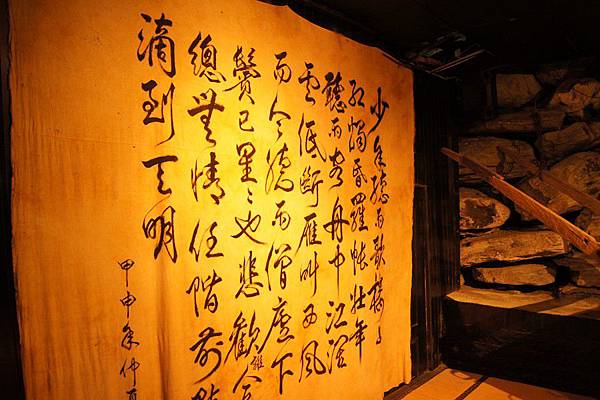 少年聽雨歌樓上
紅燭昏羅帳壯年
聽雨客舟中江闊
雲低斷雁叫西風
而今聽雨僧廬下
鬢已星々也悲歡離合
總無情任階前點
滴到天明
甲申年仲